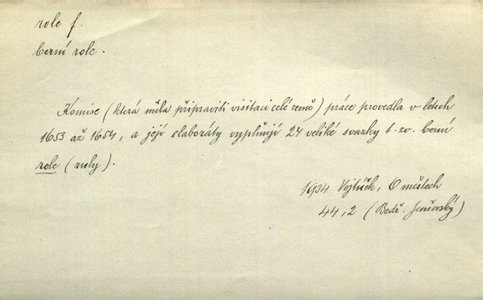 role f.
berní role.
Komise (která měla připraviti visitaci celé země) práce provedla v letech
1653 až 1654, a její elaboráty vyplňují 24 veliké svazky t. zv. berní
role (ruly).
1934 Vojtíšek, O městech
44, 2 (Bedř. Jenšovský)